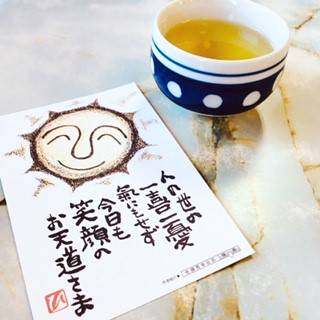 人の世の
一喜一憂
氣にもせず
今日も
笑顔の
お天道さま
ひ